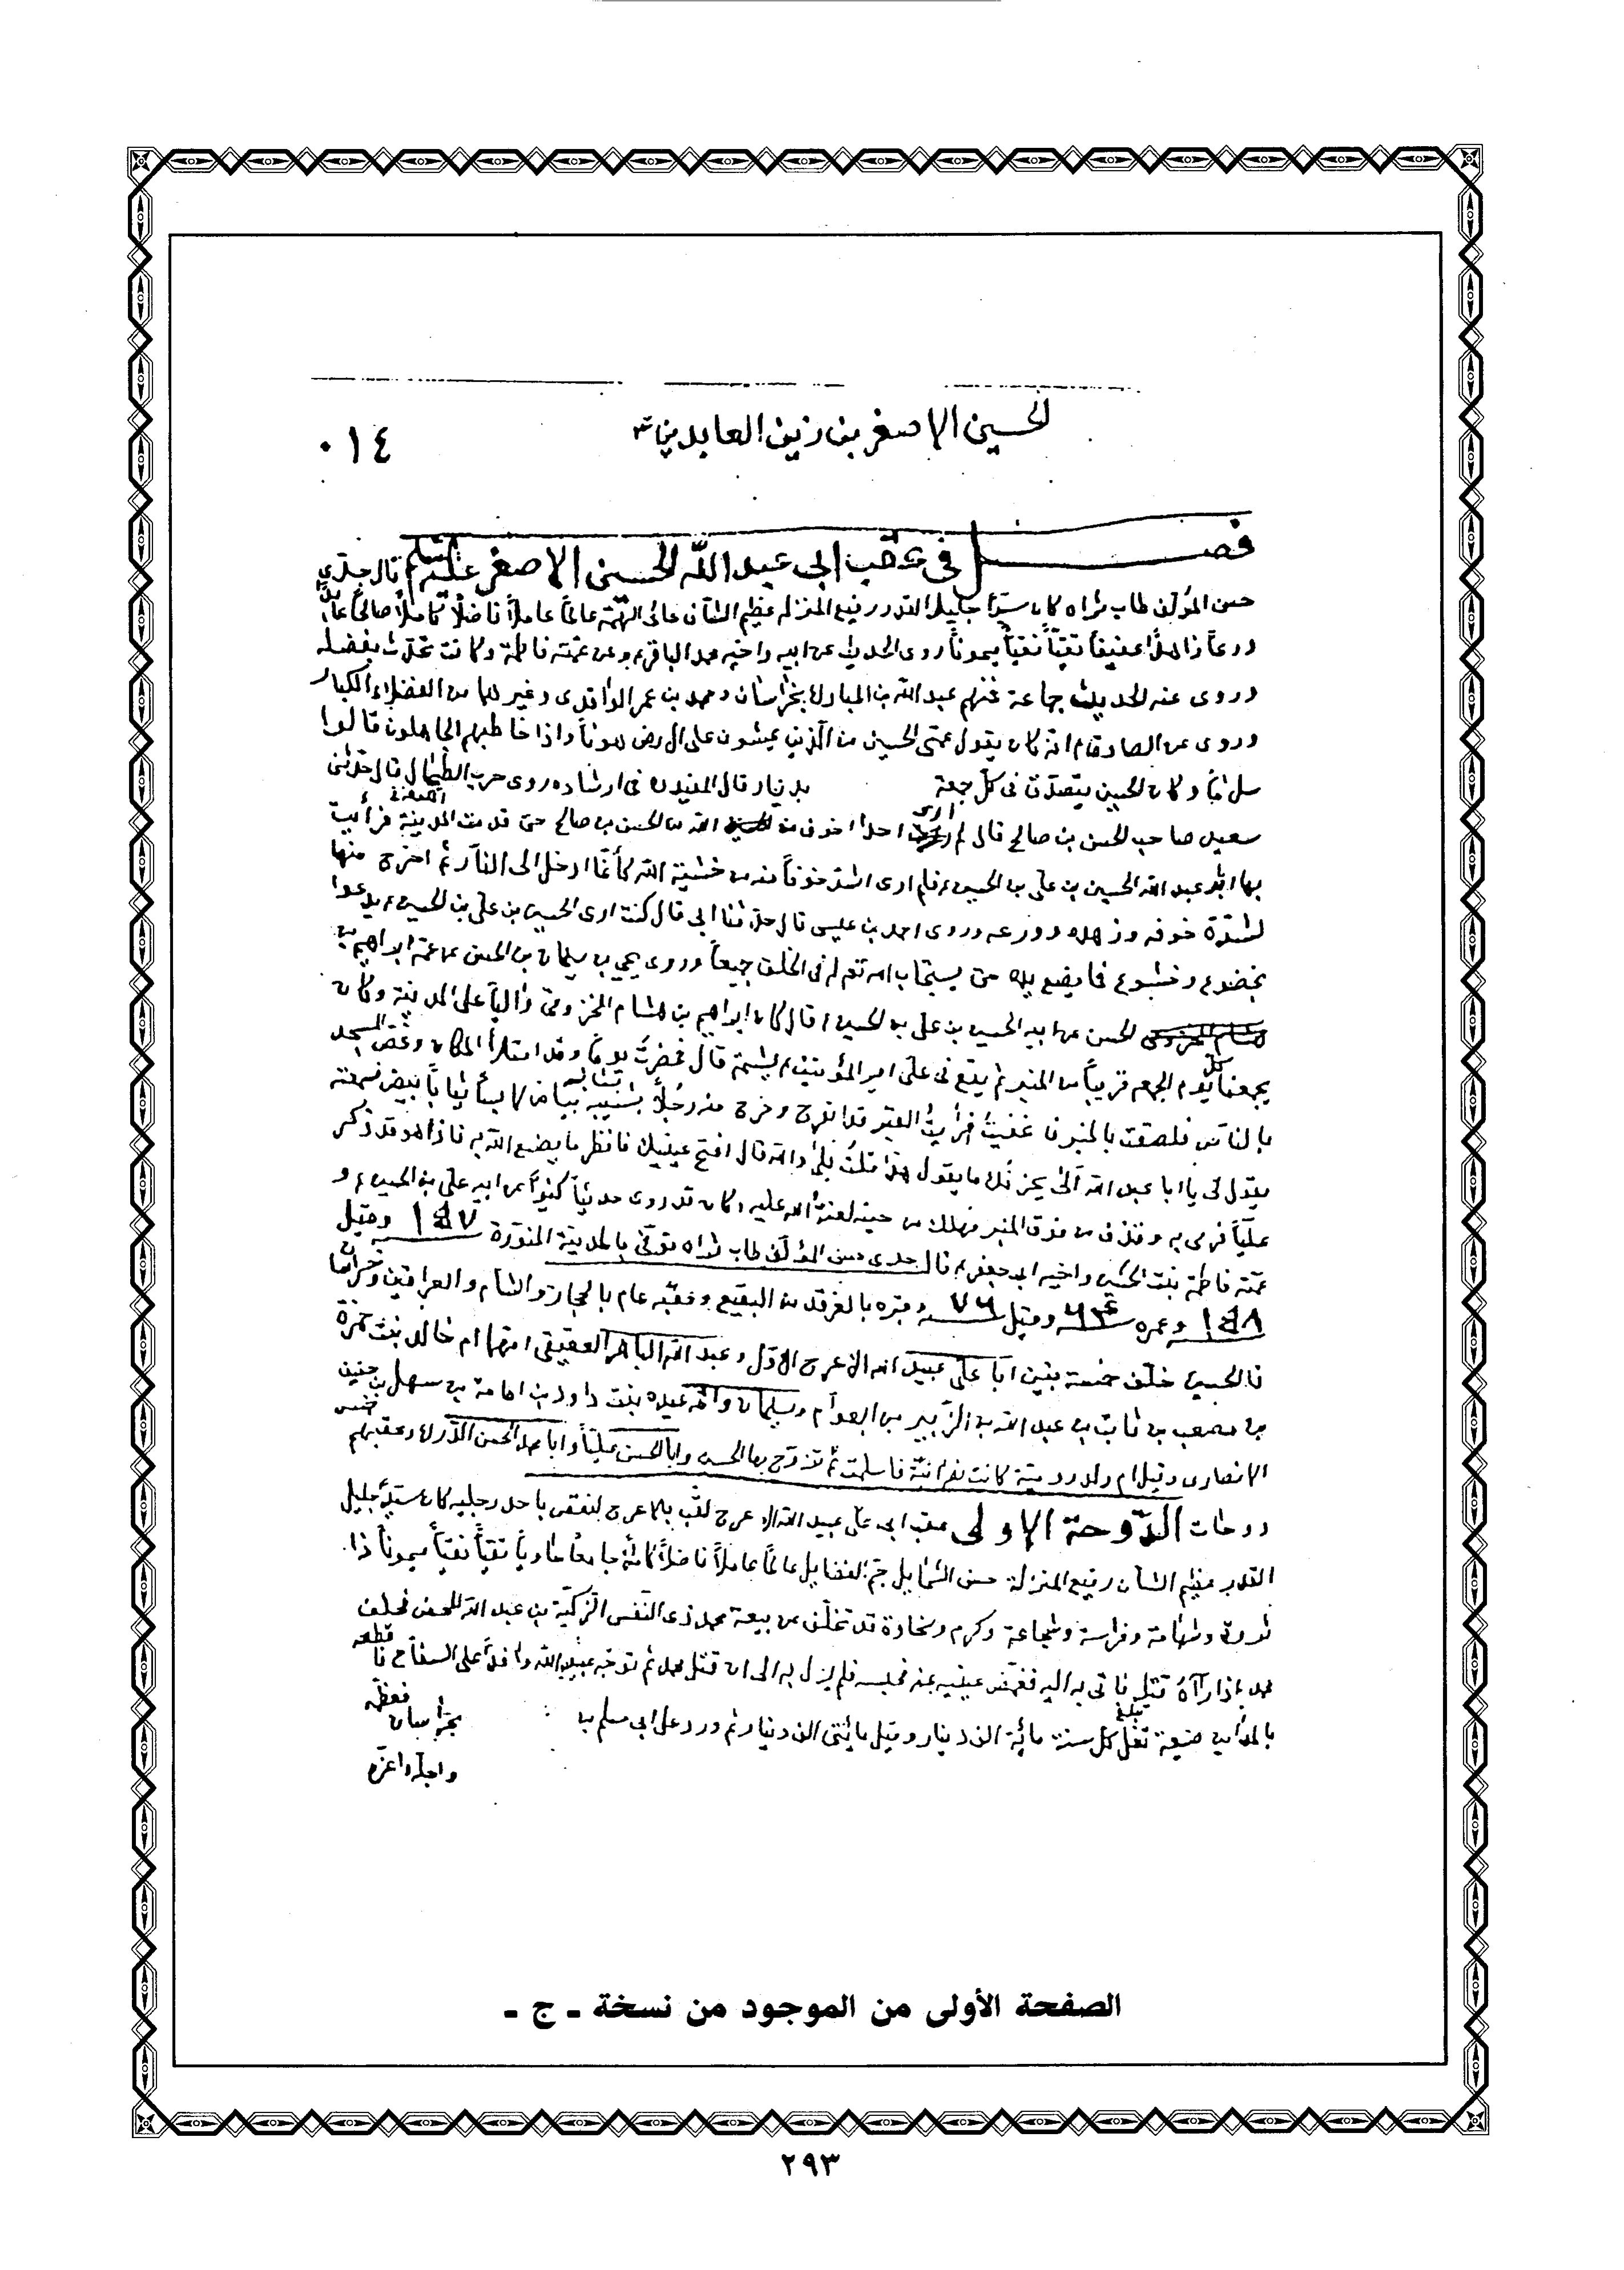 الحسين الاصغر بن زين العابدين ؑ
٠١٤
فصل في عقب ابي عبد الله الحسين الاصغر عليه السلام قال جدي
حسن المؤلف طاب ثراه كان سيدًا جليل القدر رفيع المنزلة عظيم الشأن عالي الهمة عالمًا عاملاً فاضلاً كاملاً صالحًا عابدًا
ورعاً زاهدًا عفيفاً تقيّاً نقيّاً ميموناً روى الحديث عن ابيه واخيه محمد الباقر ع وعن عمته فاطمة وكانت تحدّث بفضله
وروى عنه الحديث جماعة فمنهم عبد الله بن المبارك بخراسان ومحمد بن عمر الواقدي وغيرهما من الفضلاء الكبار
وروى عن الصادق ع انه كان يقول عمّي الحسين من الذين يمشون على الارض هوناً واذا خاطبهم الجاهلون قالوا
سلامًا وكان الحسين يتصدّق في كل جمعة بدينار قال المفيد ره في ارشاده روى حرب الطحّان قال حدّثني
سعيد صاحب الحسن بن صالح قال لم ارى احدًا اخوف من الله من الحسن بن صالح حتى قدمت المدينة فرأيت
بها ابا عبد الله الحسين بن علي بن الحسين ع فلم ارى اشد خوفاً منه من خشية الله كأنما ادخل الى النار ثم اخرج منها
لشدّة خوفه وزهده وورعه وروى احمد بن عيسى قال حدثنا ابي قال كنت ارى الحسين بن علي بن الحسين ع يدعوا
بخضوع وخشوع فما يضع يده حتى يستجاب له في الخلق جميعاً وروى يحيى بن سليمان بن الحسين عن عمّه ابراهيم بن
الحسن عن ابيه الحسين بن علي بن الحسين ع قال كان ابراهيم بن هشام المخزومي والياً على المدينة وكان
يجمعنا كل يوم الجمعه قريباً من المنبر ثم يقع في علي امير المؤمنين ع يشتمه قال فحضرت يوماً وقد امتلأ المكان وغصّ المسجد
بالناس فلصقت بالمنبر فاغفيت فرأيت القبر قد انفرج وخرج منه رجلاً بثيابه بياض لابساً ثياباً بيض
يقول لي يا ابا عبد الله ألا يحزنك ما يقول هذا قلت بلى والله قال افتح عينيك فانظر ما يضع الله به فاذا هو قد ذكر
عليّاً فرمى به وقذف من فوق المنبر فهلك من حينه لعنة الله عليه وكان قد روى حديثاً كثيراً عن ابيه علي بن الحسين ع و
عمّته فاطمة بنت الحسين واخيه ابي جعفر ع قال جدي حسن المؤلف طاب ثراه توفّي بالمدينة المنوّرة ١٥٧ وقيل
١٥٨ وعمره ٦٤ وقيل ٧٦ وقبره بالغرقد من البقيع وعقبه عام بالحجاز والشام والعراقين وخراسان
فالحسين خلّف خمسة بنين ابا علي عبيد الله الاعرج الاوّل وعبد الله الباهر العقيقي امّهما ام خالد بنت حمزة
بن مصعب بن ثابت بن عبد الله بن الزبير بن العوام وسليمان وامه عبده بنت داود بن امامة بن سهل بن حنيف
الانصاري وقيل ام ولد روميّة كانت نصرانيّة فاسلمت ثم تزوّج بها الحسين وابا الحسن عليّاً وابا محمد الحسن الدرك وعقبهم خمس
دوحات الدّوحة الاولى عقب ابي علي عبيد الله الاعرج لقّب بالاعرج لنقص باحد رجليه كان سيّدًا جليل
القدر عظيم الشأن رفيع المنزلة حسن الشمايل جمّ الفضايل عالماً عاملاً فاضلاً كاملاً جامعاً حاوياً تقيّاً نقيّاً ميموناً ذا
ثروة وشهامة وفراسة وشجاعة وكرم وسخاوة قد تخلّف عن بيعة محمد ذي النفس الزكيّة بن عبد الله المحض فحلف
محمد ع اذا رآه قتله فاتى به اليه فغمّض عينيه عنه فحبسه فلم يزل به الى ان قتل محمد ثم توجّه عبيد الله وافداً على السفاح فاقطعه
بالمداين ضيعة تغل كل سنة مائة الف دينار وقيل مائتي الف دينار ثم ورد على ابي مسلم بخراسان فعظّمه
واجلّه واعزّه
الصفحة الأولى من الموجود من نسخة ـ ج ـ
٢٩٣